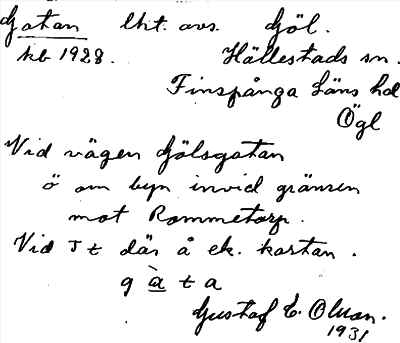 Gatan lht. avs. Göl.
kb 1928. Hällestads sn.
Finspånga Läns hd
Ögl
Vid vägen Gölsgatan
ö om byn invid gränsen
mot Rommetorp.
Vid T t där å ek. kartan.
g à t a
Gustaf E. Olsson.
1931